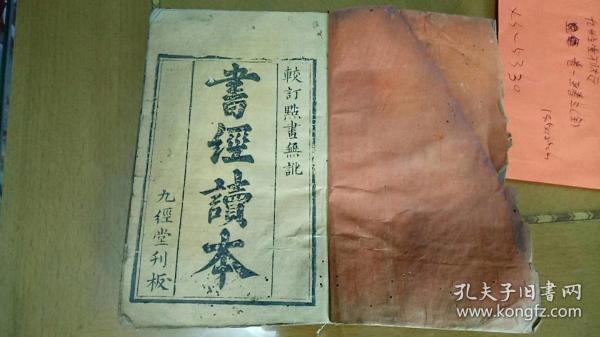 較訂點畫無訛
書經讀本
九經堂刊板
孔夫子旧書网
www.kongfz.com